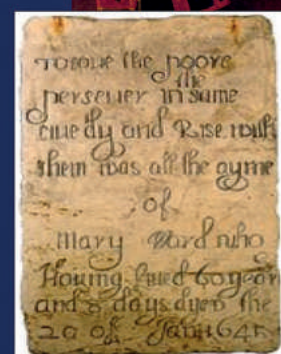 TO LOUE the poore
the
perseuer in same
Liue dy and Rise with
them was all the ayme
of
Mary Ward who
Hauing Liued 60 year
and 8 days dyed the
20 of Jan 1645